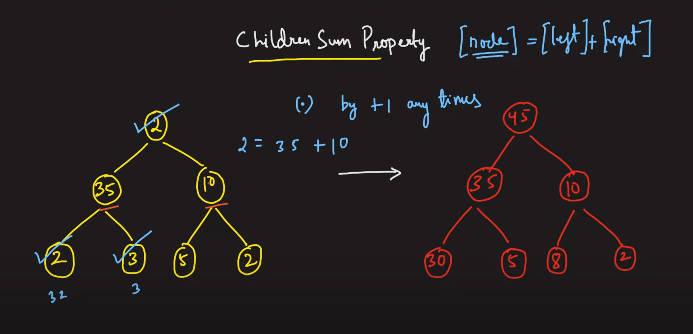 Children Sum Property [node] = [left] + [right]
(·) by +1 any times
2 = 35 + 10
2
35 10
2 3 5 2
32 3
45
35 10
30 5 8 2